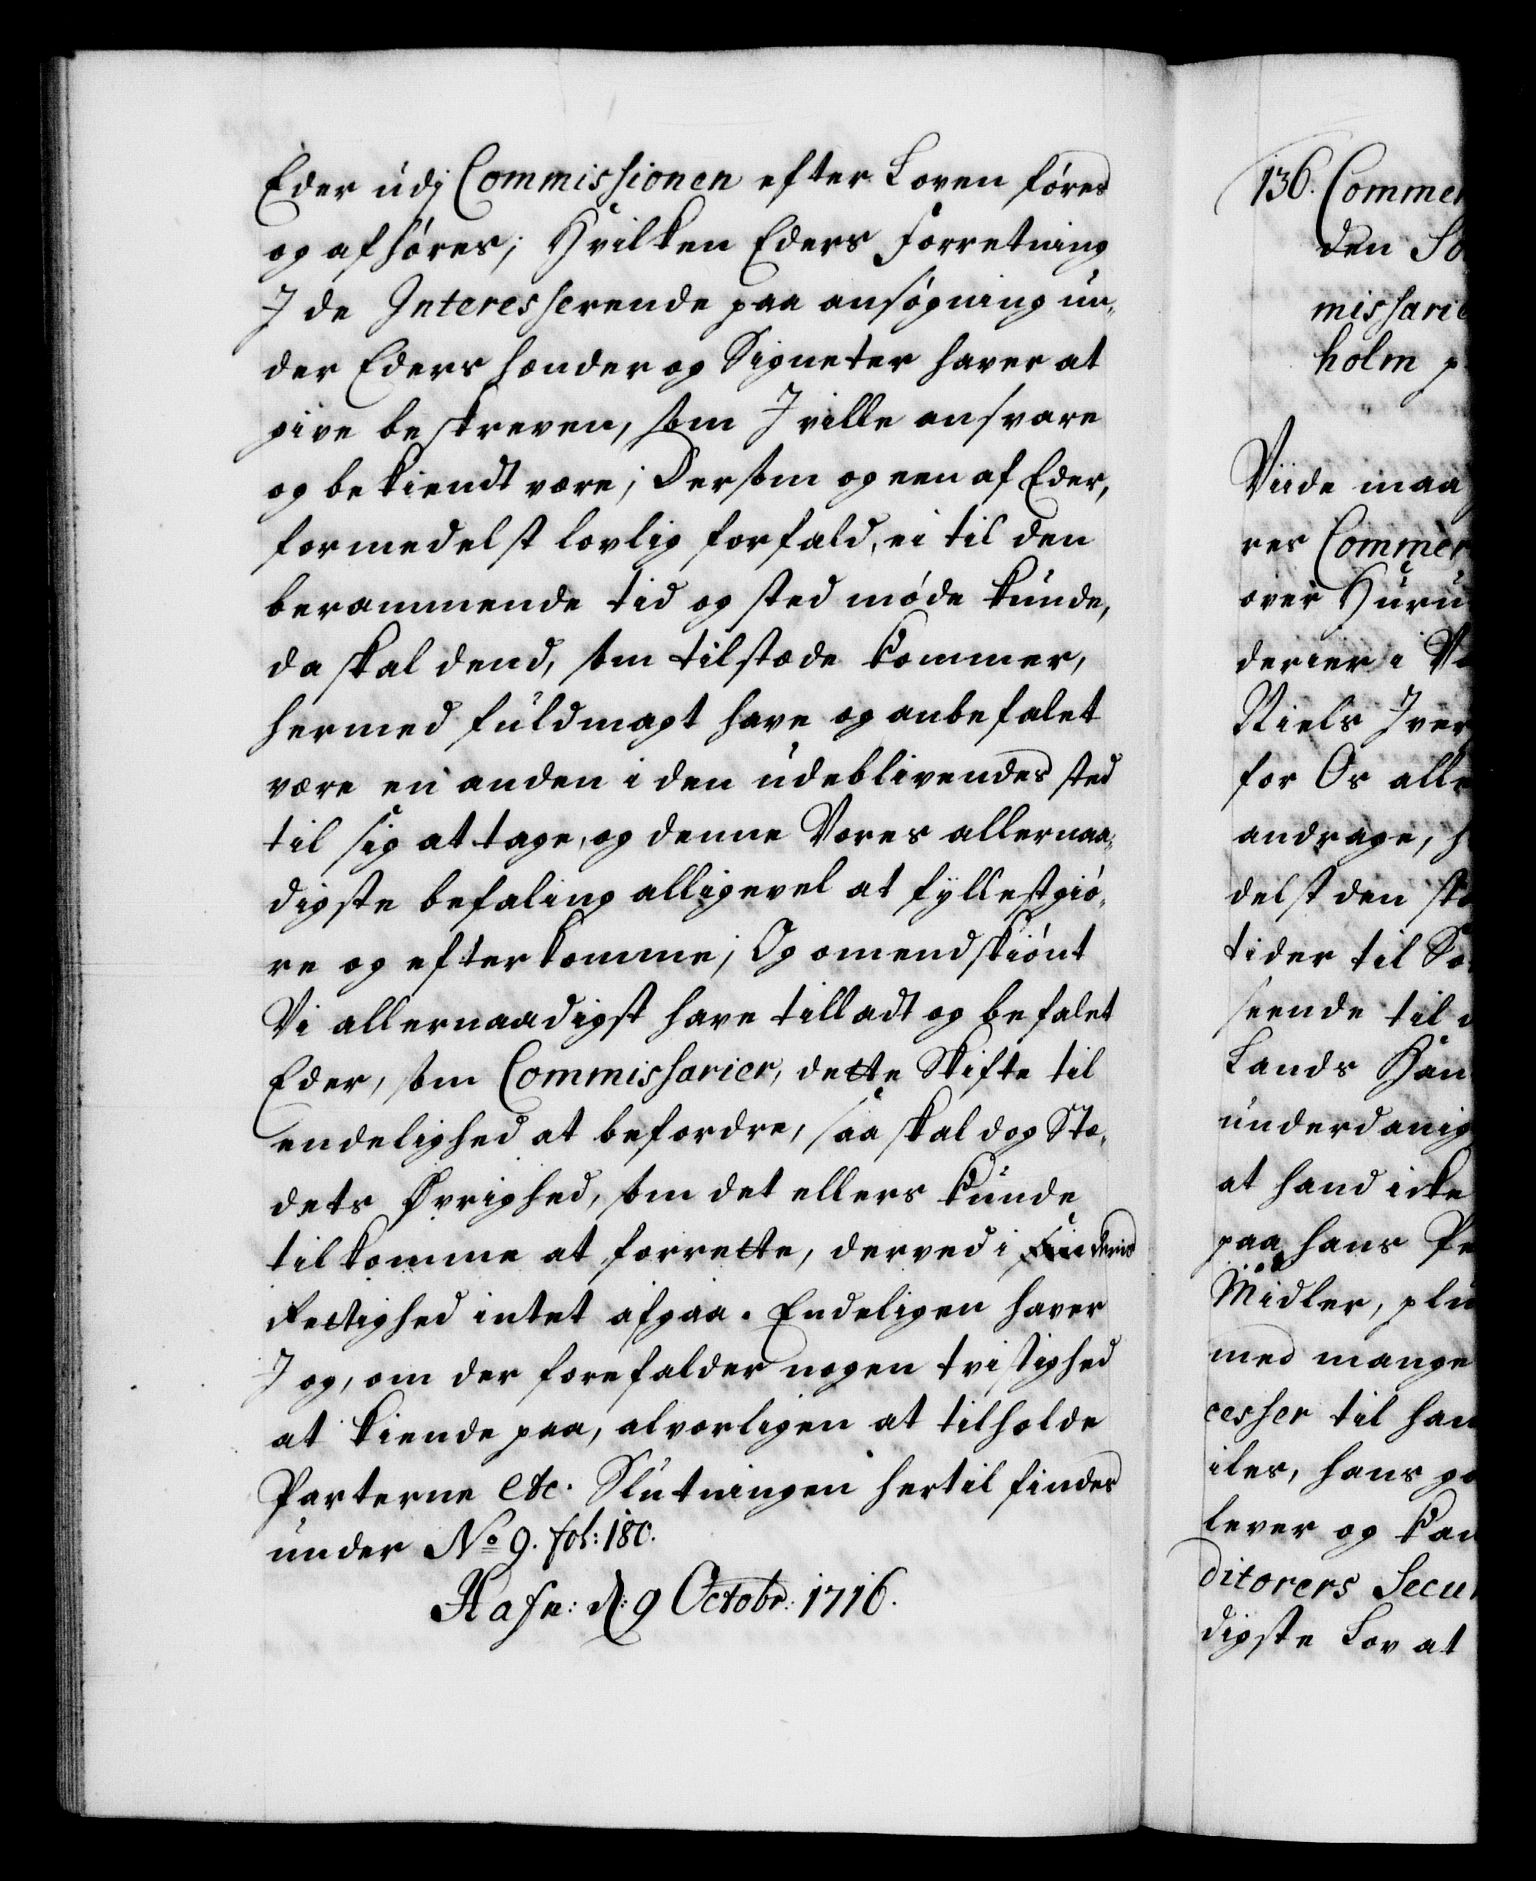 Eder udj Commissionen efter Loven føres
og afhøres; Hvilken Eders Forretning
J de Interesserende paa ansøgning un-
der Eders hænder og Signeter haver at
give beskreven, som J ville ansvare
og bekiendt være; Dersom og een af Eder,
formedelst lovlig forfald, ei til den
berammende tid og sted møde kunde,
da skal dend, som tilstæde kommer,
hermed fuldmagt have og anbefalet
være en anden i den udeblivendes sted
til sig at tage, og denne Vores allernaa-
digste befaling alligevel at fyllestgiø-
re og efterkomme; Og omendskiønt
Vi allernaadigst have tilladt og befalet
Eder, som Commissarier, dette Skifte til
endelighed at befordre, saa skal dog Stæ-
dets Øvrighed, som det ellers kunde
tilkomme at forrette, derved i deris
Rettighed intet afgaa. Endeligen haver
J og, om der forefalder nogen tvistighed
at kiende paa, alvorligen at tilholde
Parterne etc. Slutningen hertil findes
under No 9. fol: 180.
Hafn: d: 9 Octobr: 1716.
136. Commer
den So
missarie
holm p
Viide maa
res Commer
over Huru
derier i
Niels Iver
for Os alle
andrage, h
delst den
tider til
seende til
Lands
underdanig
at hand icke
paa hans
Midler, plu
med mange
cesser til han
iles, hans go
lever og kan
ditorers Secu
digste Lov at